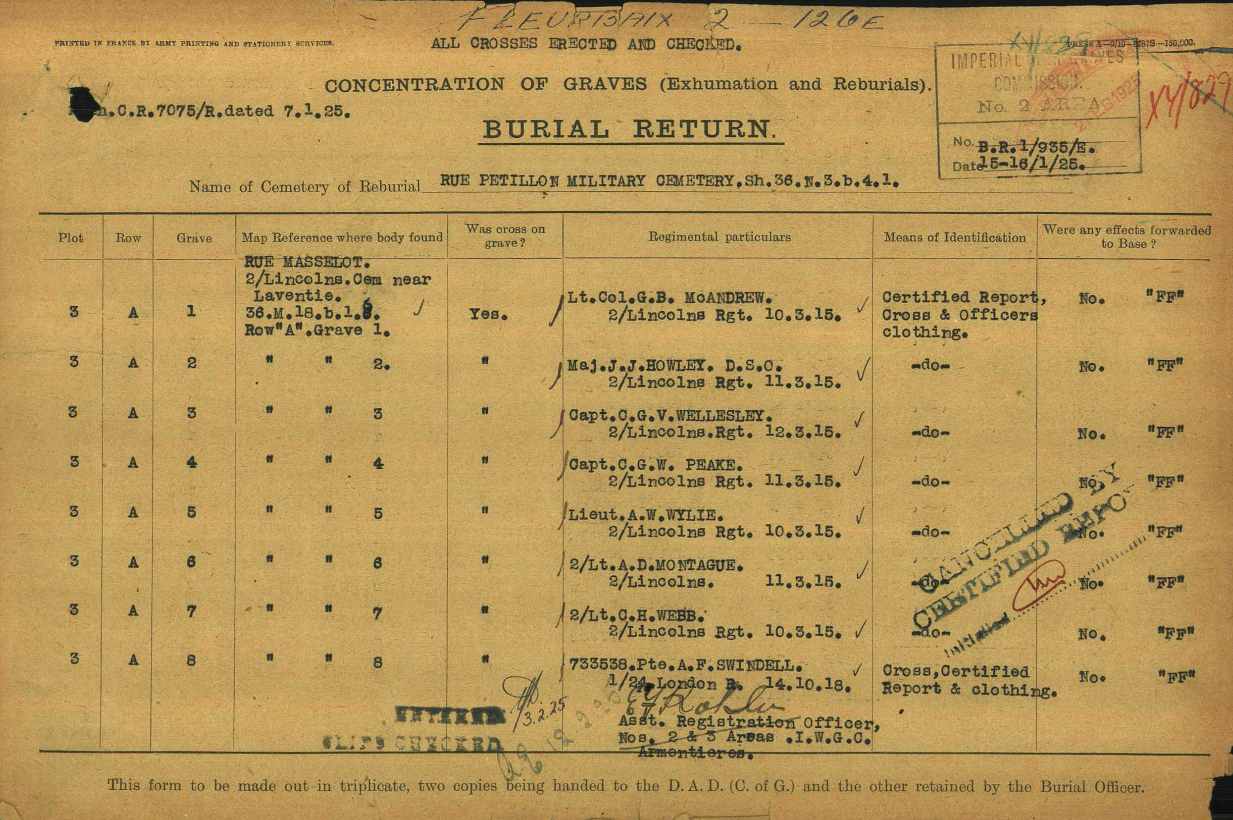 FLEURBAIX 2 — 126E
PRINTED IN FRANCE BY ARMY PRINTING AND STATIONERY SERVICES.
ALL CROSSES ERECTED AND CHECKED.
CONCENTRATION OF GRAVES (Exhumation and Reburials).
C.R.7075/R.dated 7.1.25.
BURIAL RETURN.
IMPERIAL GRAVES
COMMISSION.
No. 2 AREA
No. B.R.1/935/E.
Date 15-16/1/25.
Name of Cemetery of Reburial RUE PETILLON MILITARY CEMETERY.Sh.36.N.3.b.4.1.
Plot Row Grave Map Reference where body found Was cross on grave? Regimental particulars Means of Identification Were any effects forwarded to Base?
RUE MASSELOT.
2/Lincolns.Cem near
Laventie.
3 A 1 36.M.18.b.1.6. Yes. Lt.Col.G.B. McANDREW. Certified Report, No. "FF"
Row"A".Grave 1. 2/Lincolns Rgt. 10.3.15. Cross & Officers
clothing.
3 A 2 " " 2. " Maj.J.J.HOWLEY. D.S.O. -do- No. "FF"
2/Lincolns Rgt. 11.3.15.
3 A 3 " " 3 " Capt.C.G.V.WELLESLEY.
2/Lincolns.Rgt. 12.3.15. -do- No. "FF"
3 A 4 " " 4 " Capt.C.G.W. PEAKE.
2/Lincolns Rgt. 11.3.15. -do- No. "FF"
3 A 5 " " 5 " Lieut.A.W.WYLIE.
2/Lincolns Rgt. 10.3.15. -do- No. "FF"
3 A 6 " " 6 " 2/Lt.A.D.MONTAGUE.
2/Lincolns. 11.3.15. -do- No. "FF"
3 A 7 " " 7 " 2/Lt.C.H.WEBB.
2/Lincolns Rgt. 10.3.15. -do- No. "FF"
3 A 8 " " 8 " 733538.Pte.A.F.SWINDELL. Cross,Certified No. "FF"
1/24.London R. 14.10.18. Report & clothing.
CANCELLED BY
CERTIFIED REPO
Initialled
13.2.25
ENTERED
SLIPS CHECKED
Asst. Registration Officer,
Nos. 2 & 3 Areas .I.W.G.C.
Armentieres.
This form to be made out in triplicate, two copies being handed to the D.A.D. (C. of G.) and the other retained by the Burial Officer.